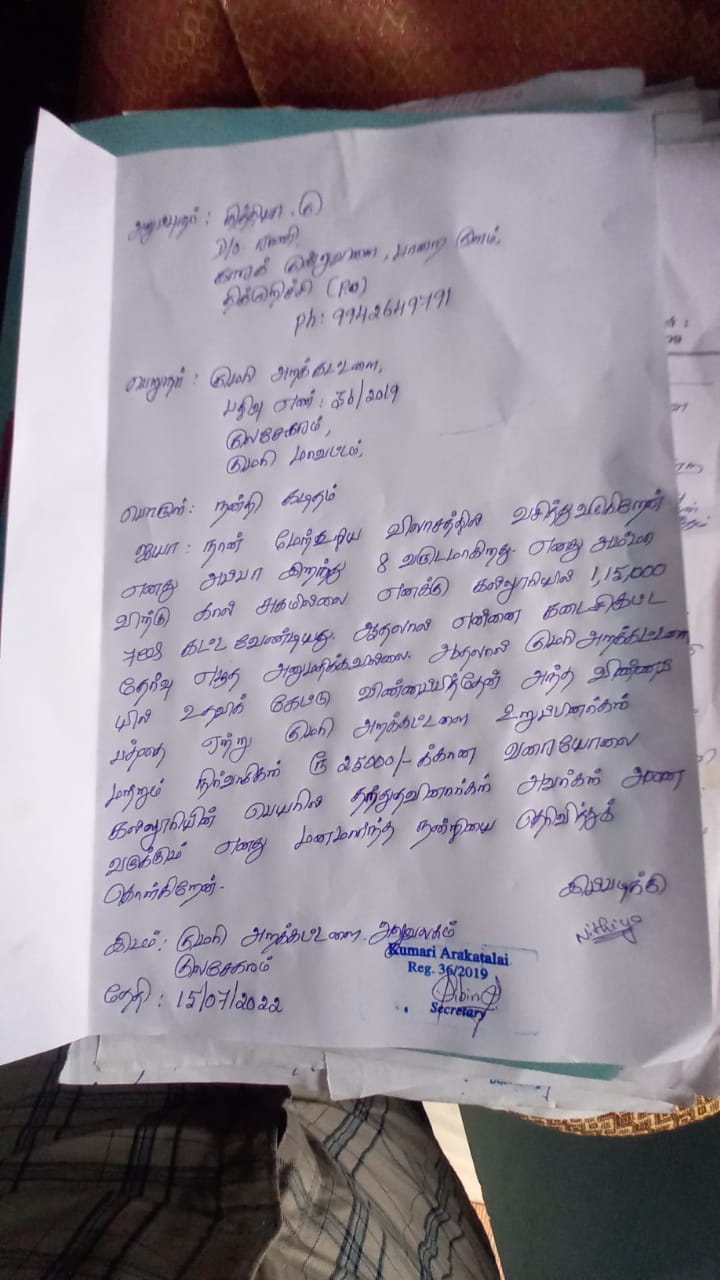 அனுப்புநர் : நித்தியா . கு
D/o ராணி,
குன்றுவிளை, பாறை குளம்,
திக்குறிச்சி (Po)
Ph: 9942649791
பெறுநர் : குமரி அறக்கட்டளை,
பதிவு எண் : 36/2019
குலசேகரம்,
குமரி மாவட்டம்,
பொருள் : நன்றி கடிதம்
ஐயா : நான் மேற்கூறிய விலாசத்தில் வசித்து வருகிறேன்
எனது அப்பா இறந்து 8 வருடமாகிறது. எனது அம்மா
எனக்கு கல்லூரியில் 1,15,000
கட்ட வேண்டியது. ஆதலால் என்னை கடைசிகட்ட
தேர்வு எழுத அனுமதிக்கவில்லை. ஆதலால் குமரி அறக்கட்டளை
யில் உதவிக் கேட்டு விண்ணப்பித்தேன் அந்த விண்ணப்
பத்தை ஏற்று குமரி அறக்கட்டளை உறுப்பினர்கள்
மற்றும் நிர்வாகிகள் ரூ 25000/- க்கான வரையோலை
கல்லூரியின் பெயரில் தந்துதவினார்கள் அவர்கள் அனை
வருக்கும் எனது மனமார்ந்த நன்றியை தெரிவித்துக்
கொள்கிறேன்.
இப்படிக்கு
Nithiya
இடம் : குமரி அறக்கட்டளை அலுவலகம்
குலசேகரம்
தேதி : 15/07/2022
Kumari Arakatalai
Reg. 36/2019
Secretary